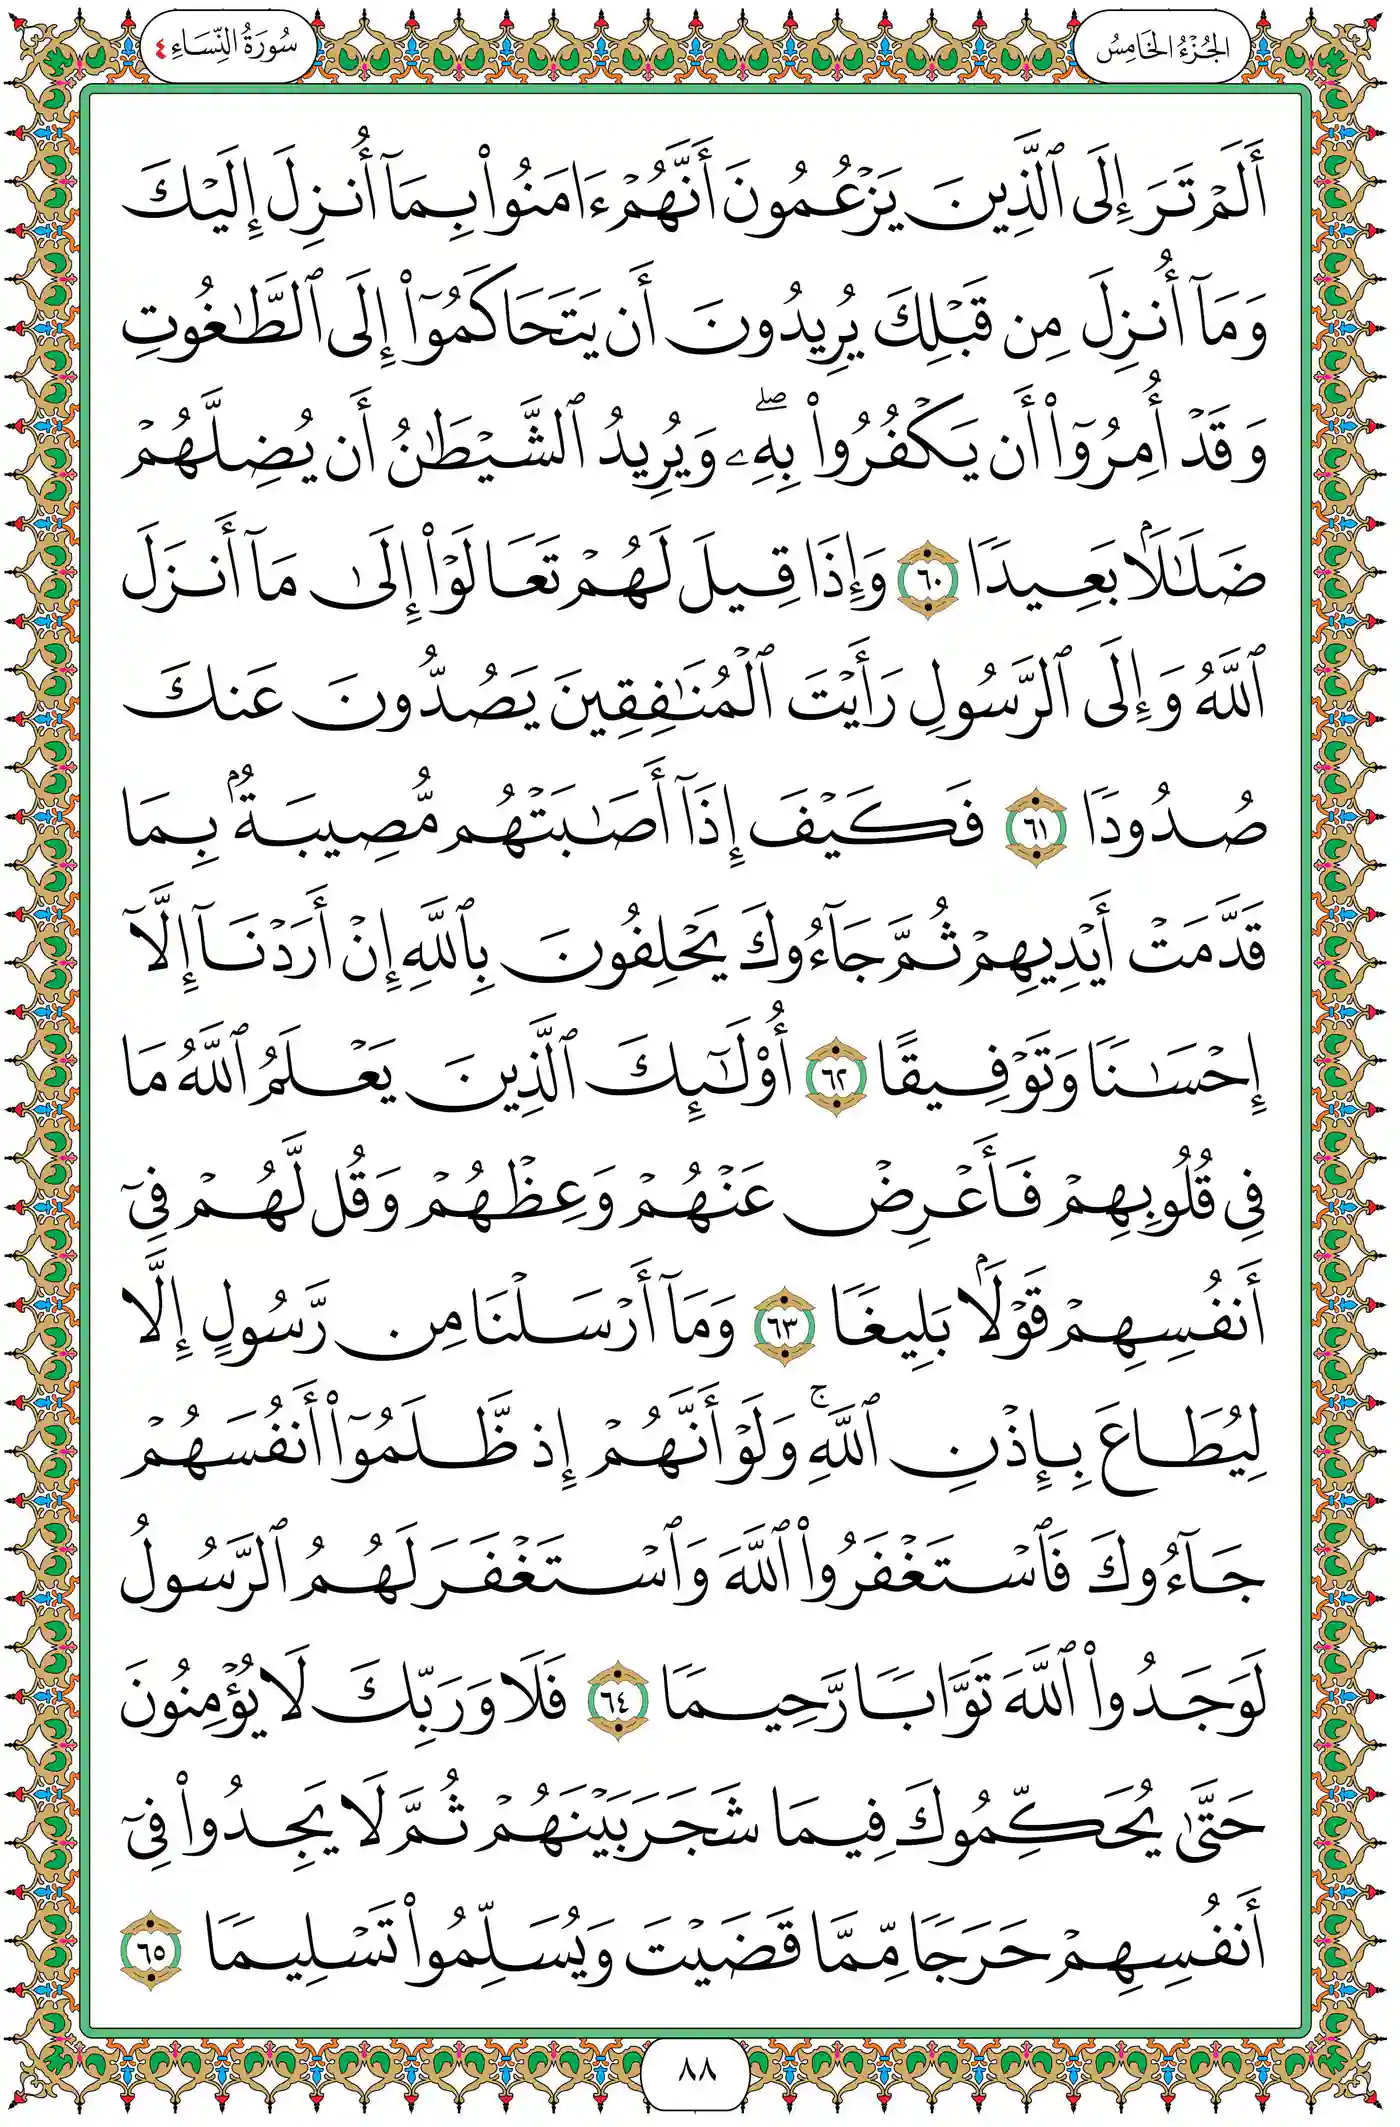 الجُزْءُ الخَامِسُ
سُورَةُ النِّسَاءِ ٤
أَلَمۡ تَرَ إِلَى ٱلَّذِينَ يَزۡعُمُونَ أَنَّهُمۡ ءَامَنُواْ بِمَآ أُنزِلَ إِلَيۡكَ
وَمَآ أُنزِلَ مِن قَبۡلِكَ يُرِيدُونَ أَن يَتَحَاكَمُوٓاْ إِلَى ٱلطَّٰغُوتِ
وَقَدۡ أُمِرُوٓاْ أَن يَكۡفُرُواْ بِهِۦۖ وَيُرِيدُ ٱلشَّيۡطَٰنُ أَن يُضِلَّهُمۡ
ضَلَٰلَۢا بَعِيدٗا ٦٠ وَإِذَا قِيلَ لَهُمۡ تَعَالَوۡاْ إِلَىٰ مَآ أَنزَلَ
ٱللَّهُ وَإِلَى ٱلرَّسُولِ رَأَيۡتَ ٱلۡمُنَٰفِقِينَ يَصُدُّونَ عَنكَ
صُدُودٗا ٦١ فَكَيۡفَ إِذَآ أَصَٰبَتۡهُم مُّصِيبَةُۢ بِمَا
قَدَّمَتۡ أَيۡدِيهِمۡ ثُمَّ جَآءُوكَ يَحۡلِفُونَ بِٱللَّهِ إِنۡ أَرَدۡنَآ إِلَّآ
إِحۡسَٰنٗا وَتَوۡفِيقًا ٦٢ أُوْلَٰٓئِكَ ٱلَّذِينَ يَعۡلَمُ ٱللَّهُ مَا
فِي قُلُوبِهِمۡ فَأَعۡرِضۡ عَنۡهُمۡ وَعِظۡهُمۡ وَقُل لَّهُمۡ فِيٓ
أَنفُسِهِمۡ قَوۡلَۢا بَلِيغٗا ٦٣ وَمَآ أَرۡسَلۡنَا مِن رَّسُولٍ إِلَّا
لِيُطَاعَ بِإِذۡنِ ٱللَّهِۚ وَلَوۡ أَنَّهُمۡ إِذ ظَّلَمُوٓاْ أَنفُسَهُمۡ
جَآءُوكَ فَٱسۡتَغۡفَرُواْ ٱللَّهَ وَٱسۡتَغۡفَرَ لَهُمُ ٱلرَّسُولُ
لَوَجَدُواْ ٱللَّهَ تَوَّابٗا رَّحِيمٗا ٦٤ فَلَا وَرَبِّكَ لَا يُؤۡمِنُونَ
حَتَّىٰ يُحَكِّمُوكَ فِيمَا شَجَرَ بَيۡنَهُمۡ ثُمَّ لَا يَجِدُواْ فِيٓ
أَنفُسِهِمۡ حَرَجٗا مِّمَّا قَضَيۡتَ وَيُسَلِّمُواْ تَسۡلِيمٗا ٦٥
٨٨